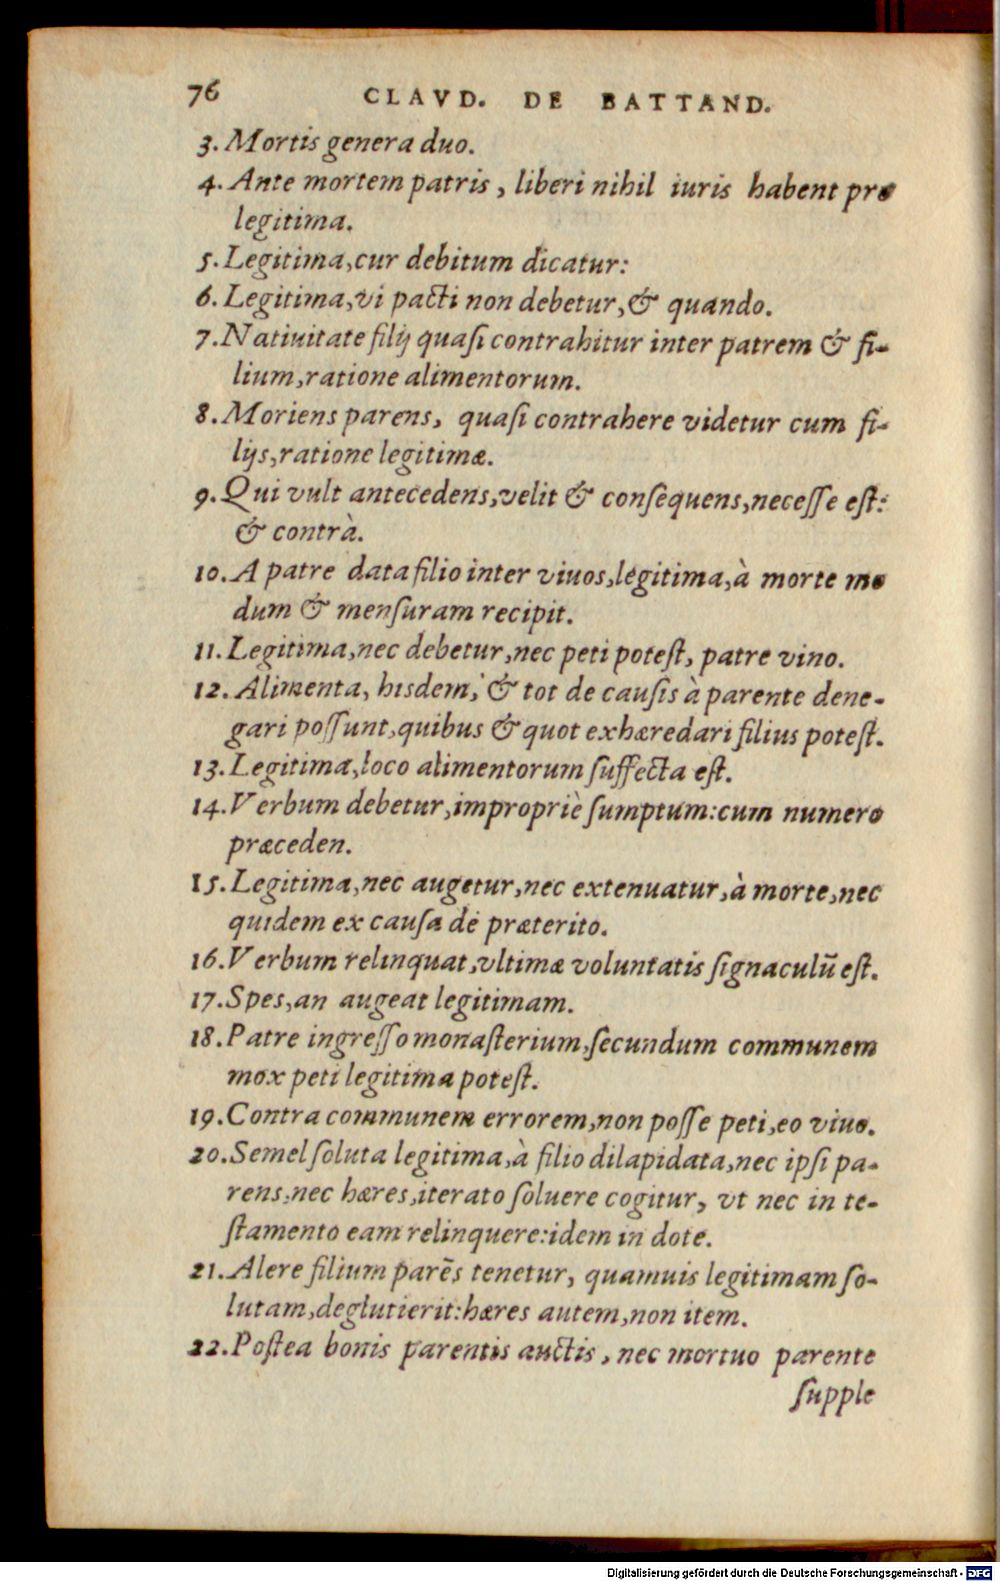 76 CLAVD. DE BATTAND.
3. Mortis genera duo.
4. Ante mortem patris, liberi nihil iuris habent pro
legitima.
5. Legitima, cur debitum dicatur:
6. Legitima, vi pacti non debetur, & quando.
7. Natiuitate filij quaſi contrahitur inter patrem & fi-
lium, ratione alimentorum.
8. Moriens parens, quaſi contrahere videtur cum fi-
lijs, ratione legitimæ.
9. Qui vult antecedens, velit & conſequens, neceſſe eſt:
& contrà.
10. A patre data filio inter viuos, legitima, à morte mo
dum & menſuram recipit.
11. Legitima, nec debetur, nec peti poteſt, patre vino.
12. Alimenta, hisdem, & tot de cauſis à parente dene-
gari poſſunt, quibus & quot exhæredari filius poteſt.
13. Legitima, loco alimentorum ſuffecta eſt.
14. Verbum debetur, impropriè ſumptum: cum numero
præceden.
15. Legitima, nec augetur, nec extenuatur, à morte, nec
quidem ex cauſa de præterito.
16. Verbum relinquat, vltimæ voluntatis ſignaculū eſt.
17. Spes, an augeat legitimam.
18. Patre ingreſſo monaſterium, ſecundum communem
mox peti legitima poteſt.
19. Contra communem errorem, non poſſe peti, eo viuo.
20. Semel ſoluta legitima, à filio dilapidata, nec ipſi pa-
rens, nec hæres, iterato ſoluere cogitur, vt nec in te-
ſtamento eam relinquere: idem in dote.
21. Alere filium parēs tenetur, quamuis legitimam ſo-
lutam, deglutierit: hæres autem, non item.
22. Poſtea bonis parentis auctis, nec mortuo parente
ſupple
Digitalisierung gefördert durch die Deutsche Forschungsgemeinschaft - DFG